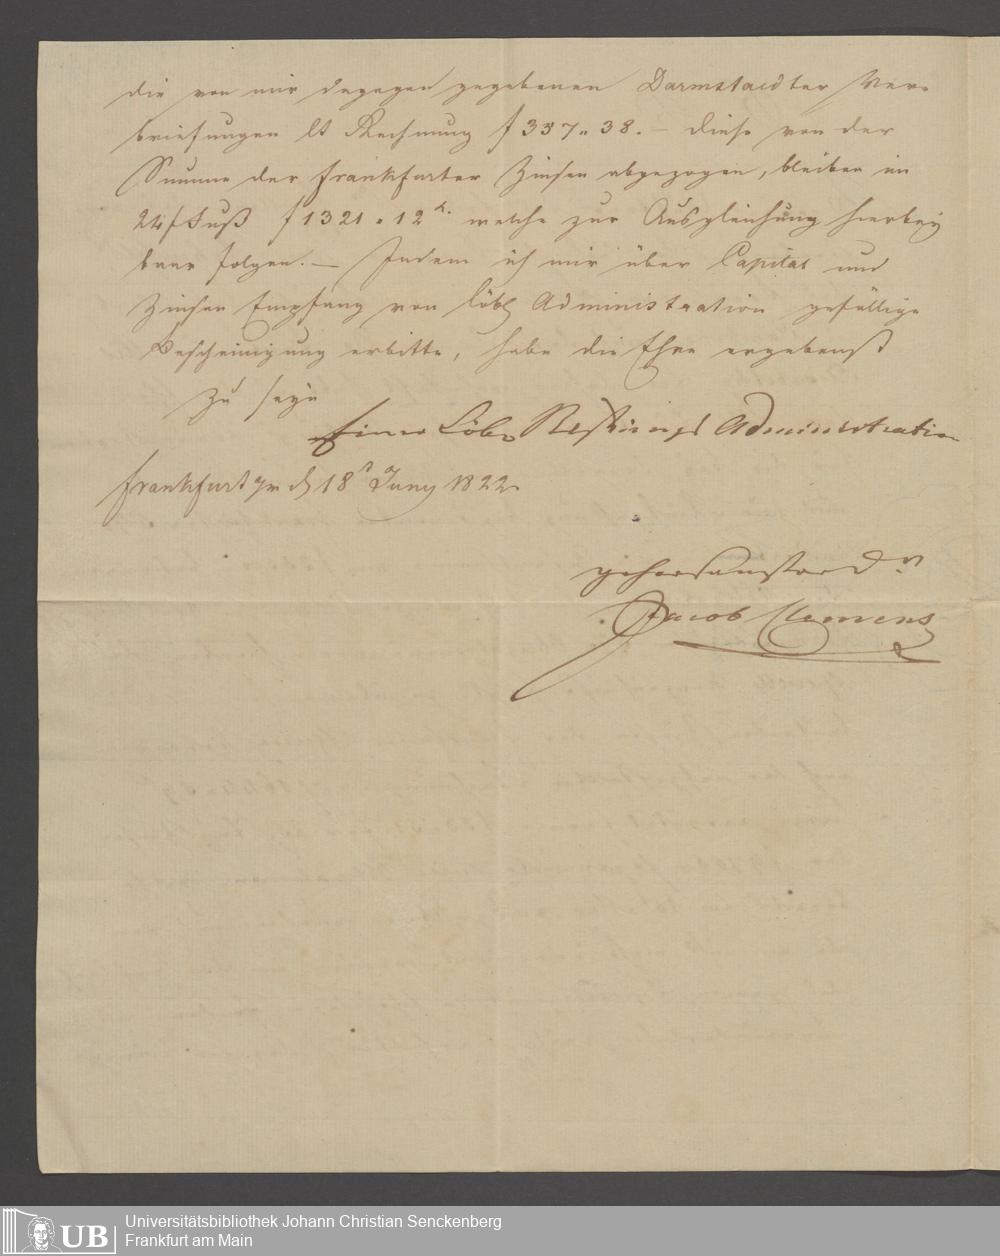 die von mir dagegen gegebenen Darmstaedter Ver-
briefungen lt Rechnung f 337„ 38. – diese von der
Summe der Frankfurter Zinsen abgezogen, bleiben im
24 f Fuß f 1321 „ 12 x. welche zur Ausgleichung hierbey
baar folgen. – Indem ich mir über Capital und
Zinsen Empfang von Löbl Administration gefällige
Bescheinigung erbitte, habe die Ehre ergebenst
zu seyn
Einer Löbn Stiftungs Administration
Frankfurt 18 Juny 1822.
gehorsamster Dr
Jacob Clemens
UB
Universitätsbibliothek Johann Christian Senckenberg
Frankfurt am Main